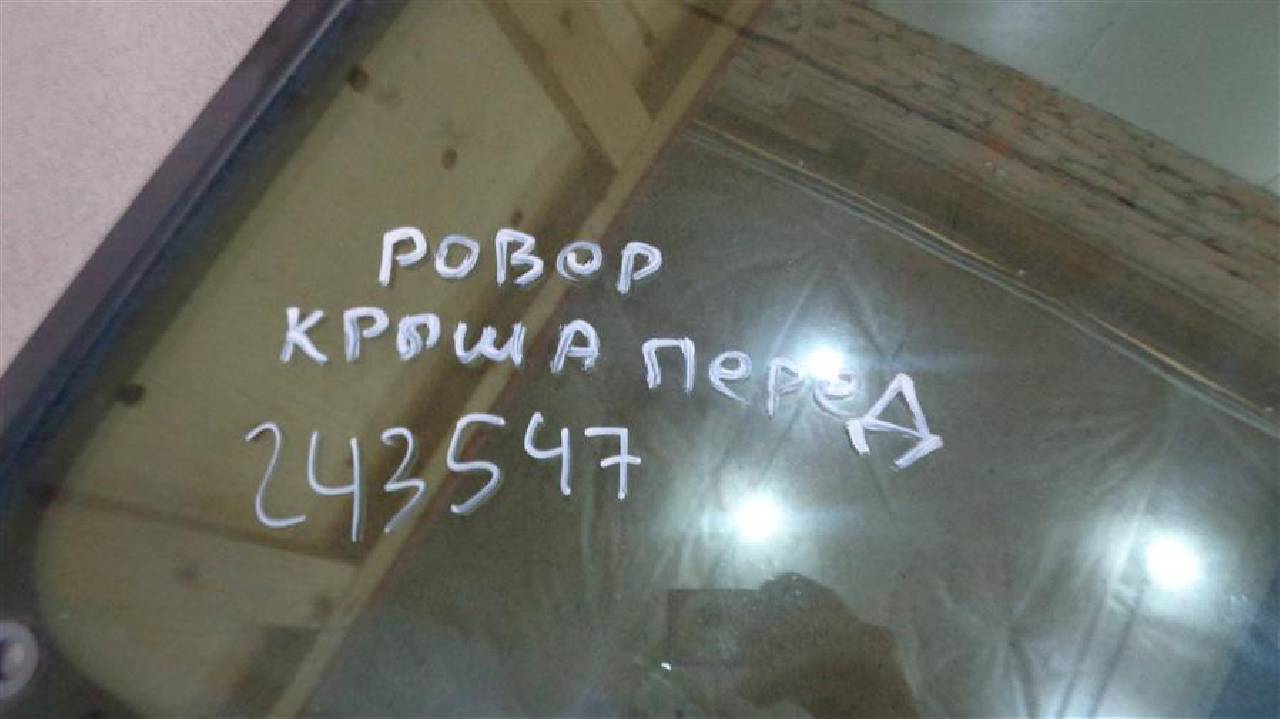 РОВОР
КРЫША ПереД
243547